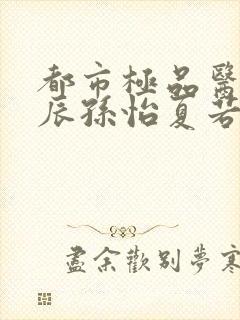 都市極品醫
辰孫怡夏若
盡余歡別夢寒